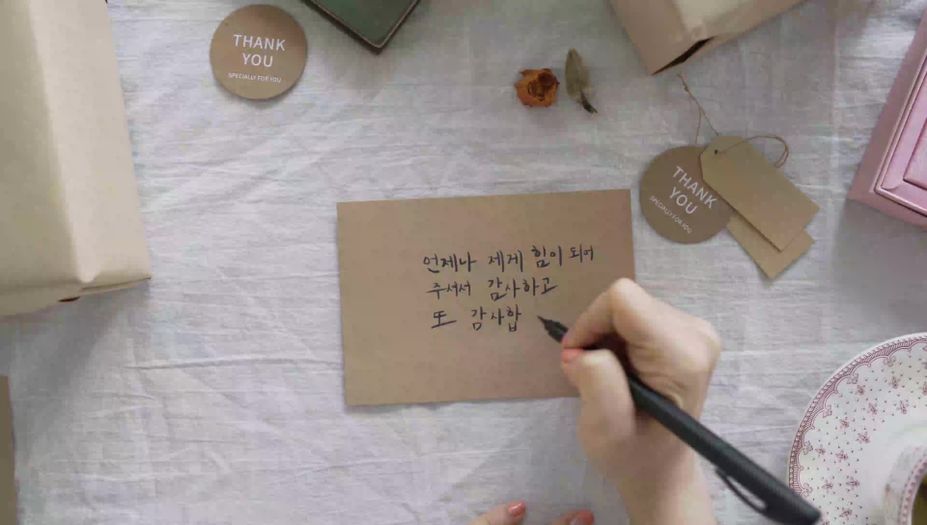 THANK
YOU
SPECIALLY FOR YOU
THANK
YOU
SPECIALLY FOR YOU
언제나 제게 힘이 되어
주셔서 감사하고
또 감사합